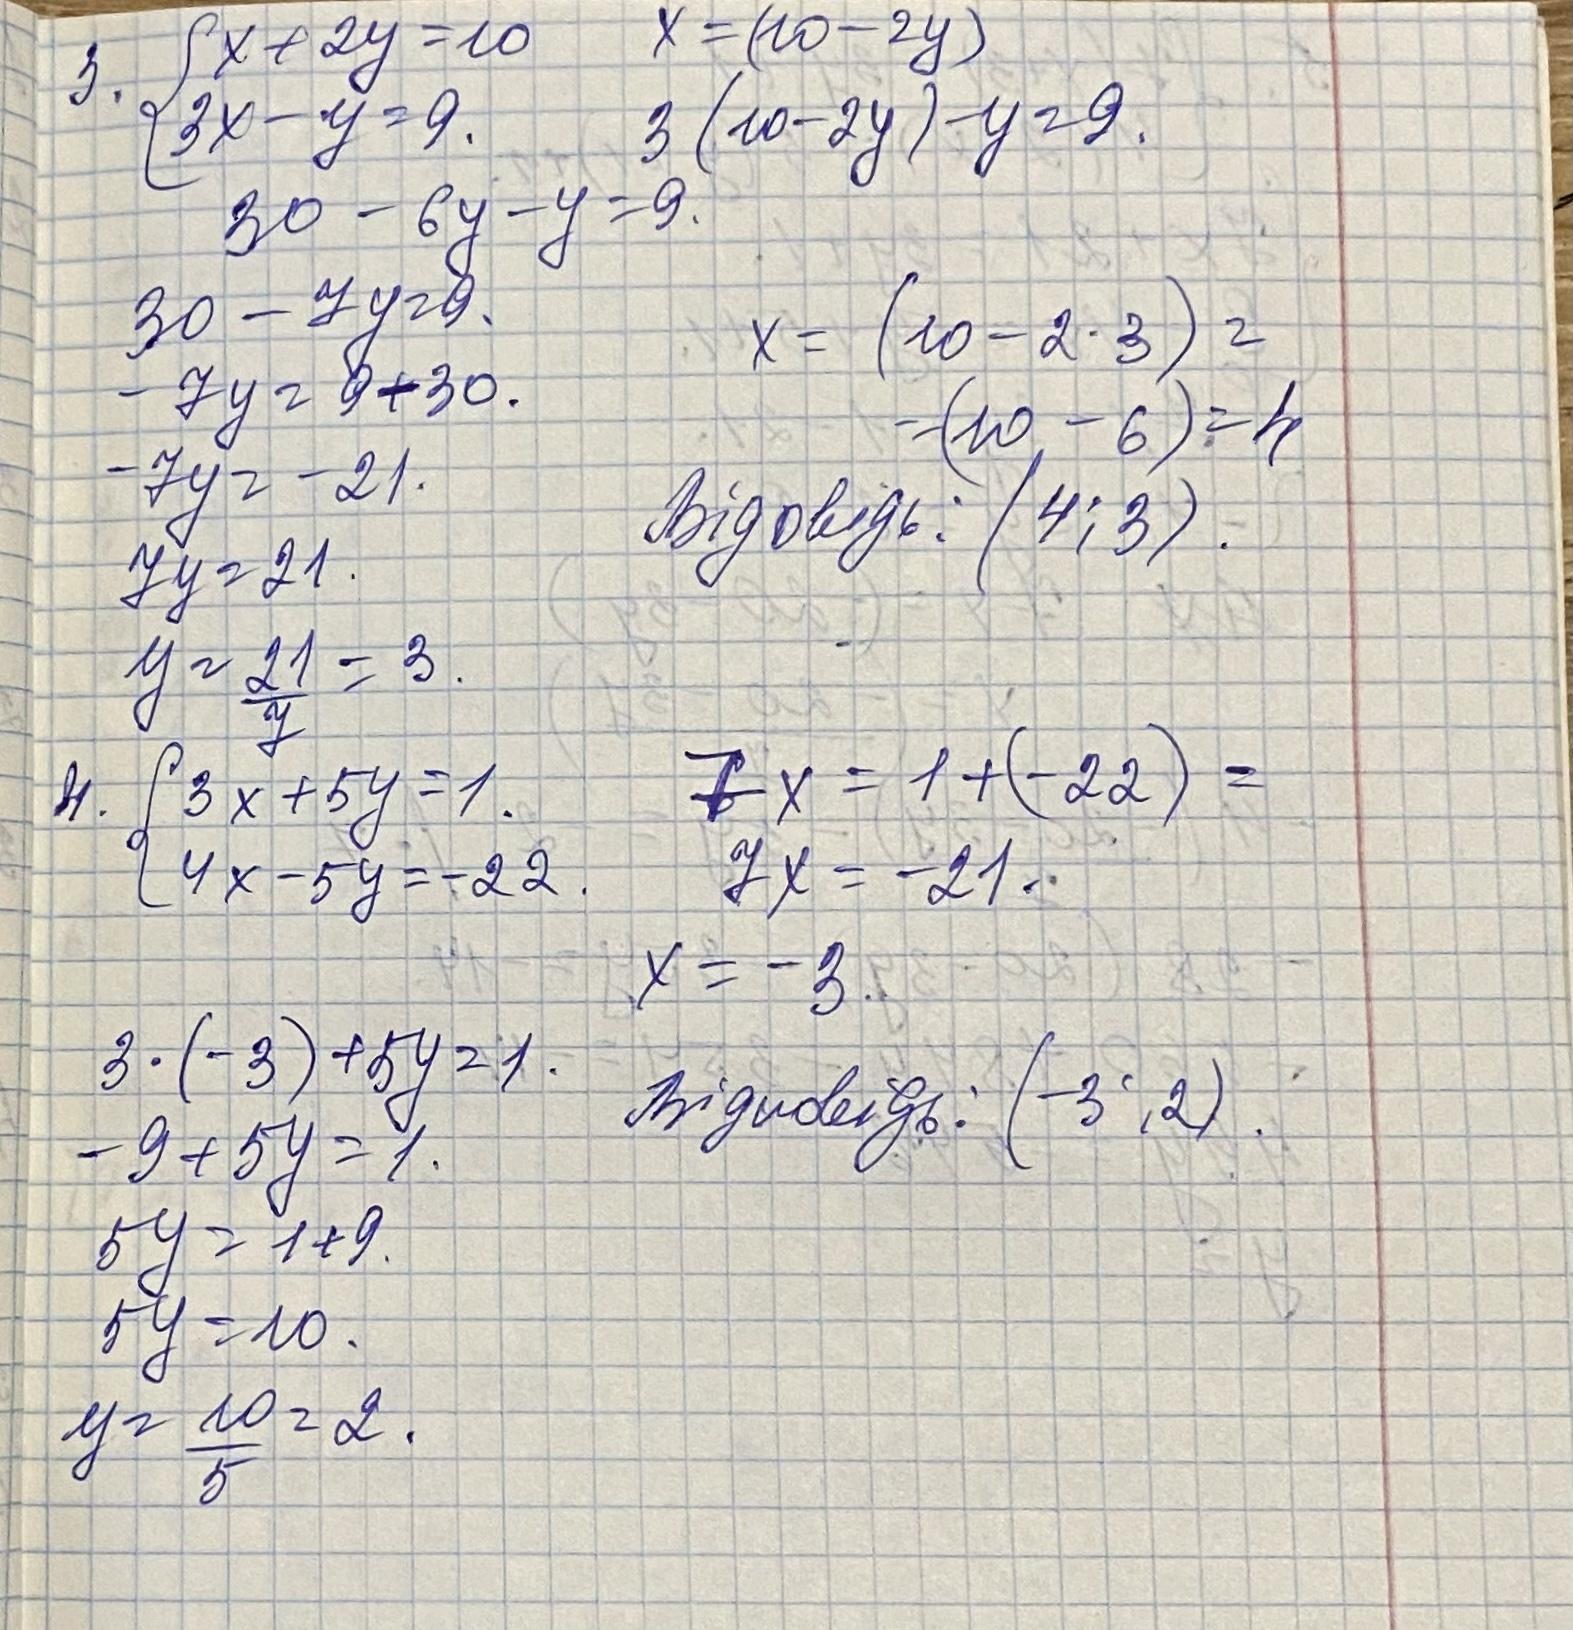 3. { x + 2y = 10    x = (10 - 2y)
{ 3x - y = 9.    3 (10 - 2y) - y = 9.
30 - 6y - y = 9.
30 - 7y = 9.
-7y = 9 - 30.
-7y = -21.
7y = 21.
y = 21/7 = 3.
x = (10 - 2 · 3) =
= (10 - 6) = 4
Відовідь: (4; 3).
4. { 3x + 5y = 1.
{ 4x - 5y = -22.
7x = 1 + (-22) =
7x = -21.
x = -3.
3 · (-3) + 5y = 1.
-9 + 5y = 1.
5y = 1 + 9.
5y = 10.
y = 10/5 = 2.
Відповідь: (-3; 2).